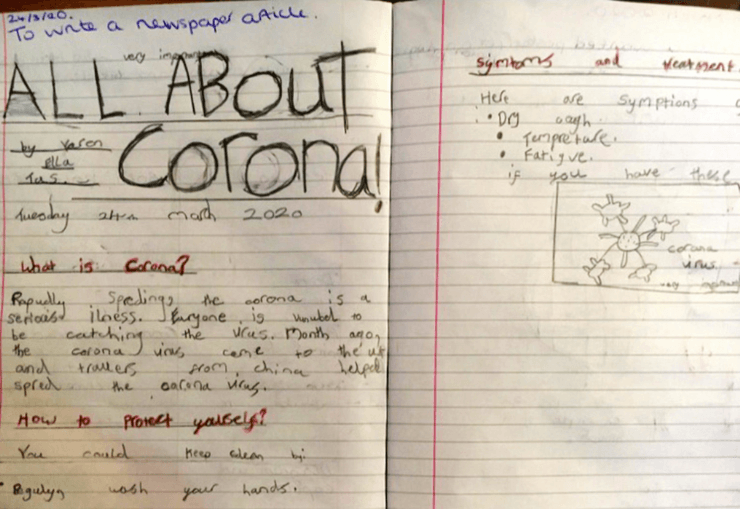 24/3/20.
To write a newspaper article.
very
ALL ABOUT
Corona!
by Yaren
Ella
Tuesday 24th march 2020
What is Corona?
Rapudly Spredings the corona is a
seriouse illness. Euryone is to
be catching the virus. Month ago,
the corona virus came to the uk
and from china helped
spred the corona virus.
How to Protect yourself?
You could keep clean by:
wash your hands.
Symtoms and treatment
Here are Symptions
• Dry cough
• Tempreture.
• Fatigue.
if you have these
corona
virus